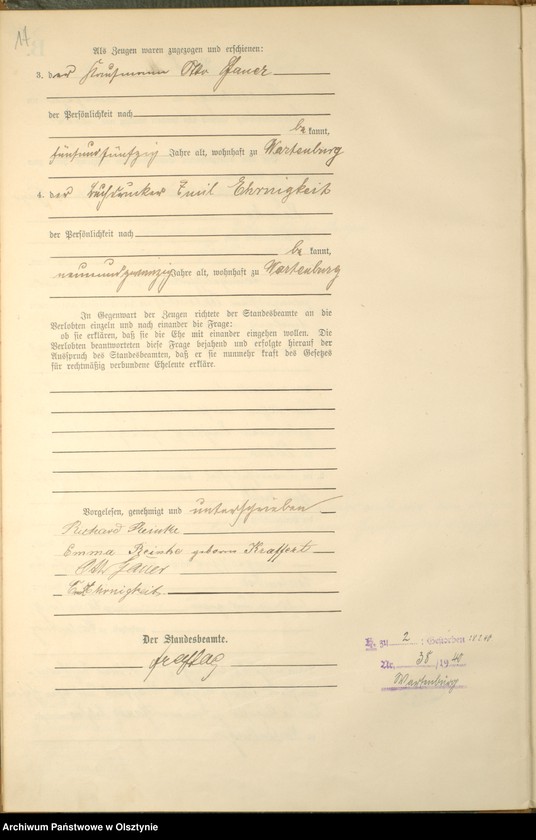 Als Zeugen waren zugezogen und erschienen:
3. der Kaufmann Otto
der Persönlichkeit nach
be kannt,
fünfundfünfzig Jahre alt, wohnhaft zu Wartenburg
4. der Buchdrucker Emil Ehrnigkeit
der Persönlichkeit nach
be kannt,
neunundzwanzig Jahre alt, wohnhaft zu Wartenburg
In Gegenwart der Zeugen richtete der Standesbeamte an die
Verlobten einzeln und nach einander die Frage:
ob sie erklären, daß sie die Ehe mit einander eingehen wollen. Die
Verlobten beantworteten diese Frage bejahend und erfolgte hierauf der
Ausspruch des Standesbeamten, daß er sie nunmehr kraft des Gesetzes
für rechtmäßig verbundene Eheleute erkläre.
Vorgelesen, genehmigt und unterschrieben
Richard Reinke
Emma Reinke geborene Kraffert
Otto
E. Ehrnigkeit
Der Standesbeamte.
Freytag
zu 2
Nr. 38 /19 40
Wartenburg
Archiwum Państwowe w Olsztynie